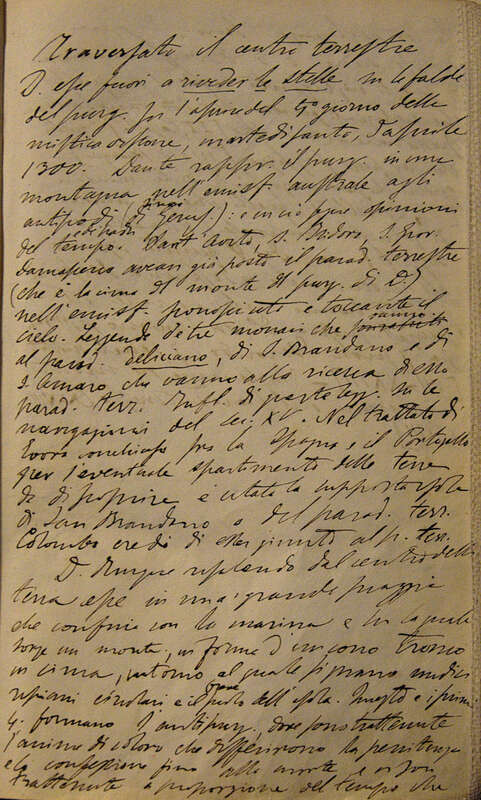 Traversato il centro terrestre
D. esce fuori a riveder le stelle su le falde
del purg. su l'albore del 4° giorno della
mistica visione, martedì santo, 5 aprile
1300. Dante rappr. il purg. in una
montagna nell'emisf. australe agli
antipodi (di Gerus.): e in ciò segue opinioni
del tempo. Sant'Agost, S. Isidoro, S. Giov.
Damasceno avean già posto il parad. terrestre
(che è la cima del monte del purg. di D.)
nell'emisf. e toccante il
cielo. Leggende de' tre monaci che vanno
al parad. deliciano, di S. Brandano e di
S. Amaro che vanno alla ricerca di esso
parad. terr. Infl. di queste legg. su le
navigazioni del sec. XV. Nel trattato di
Evora conchiuso fra la Spagna e il Portogallo
per l'eventuale spartimento delle terre
da scoprire è citata la supposta isola
di San Brandano o del parad. terr.
Colombo credé di esser giunto al p. terr.
D. dunque risalendo dal centro della
terra esce in una grande spiaggia
che confina con la marina e su la quale
sorge un monte, in forma d'un cono tronco
in cima, intorno al quale girano undici
ripiani circolari, e il dell'isola. Questo e i primi
4. formano l'antipurg., dove sono trattenute
l'anime di coloro che differirono la penitenza
e la confessione fino alla morte e vi son
trattenute a proporzione del tempo che